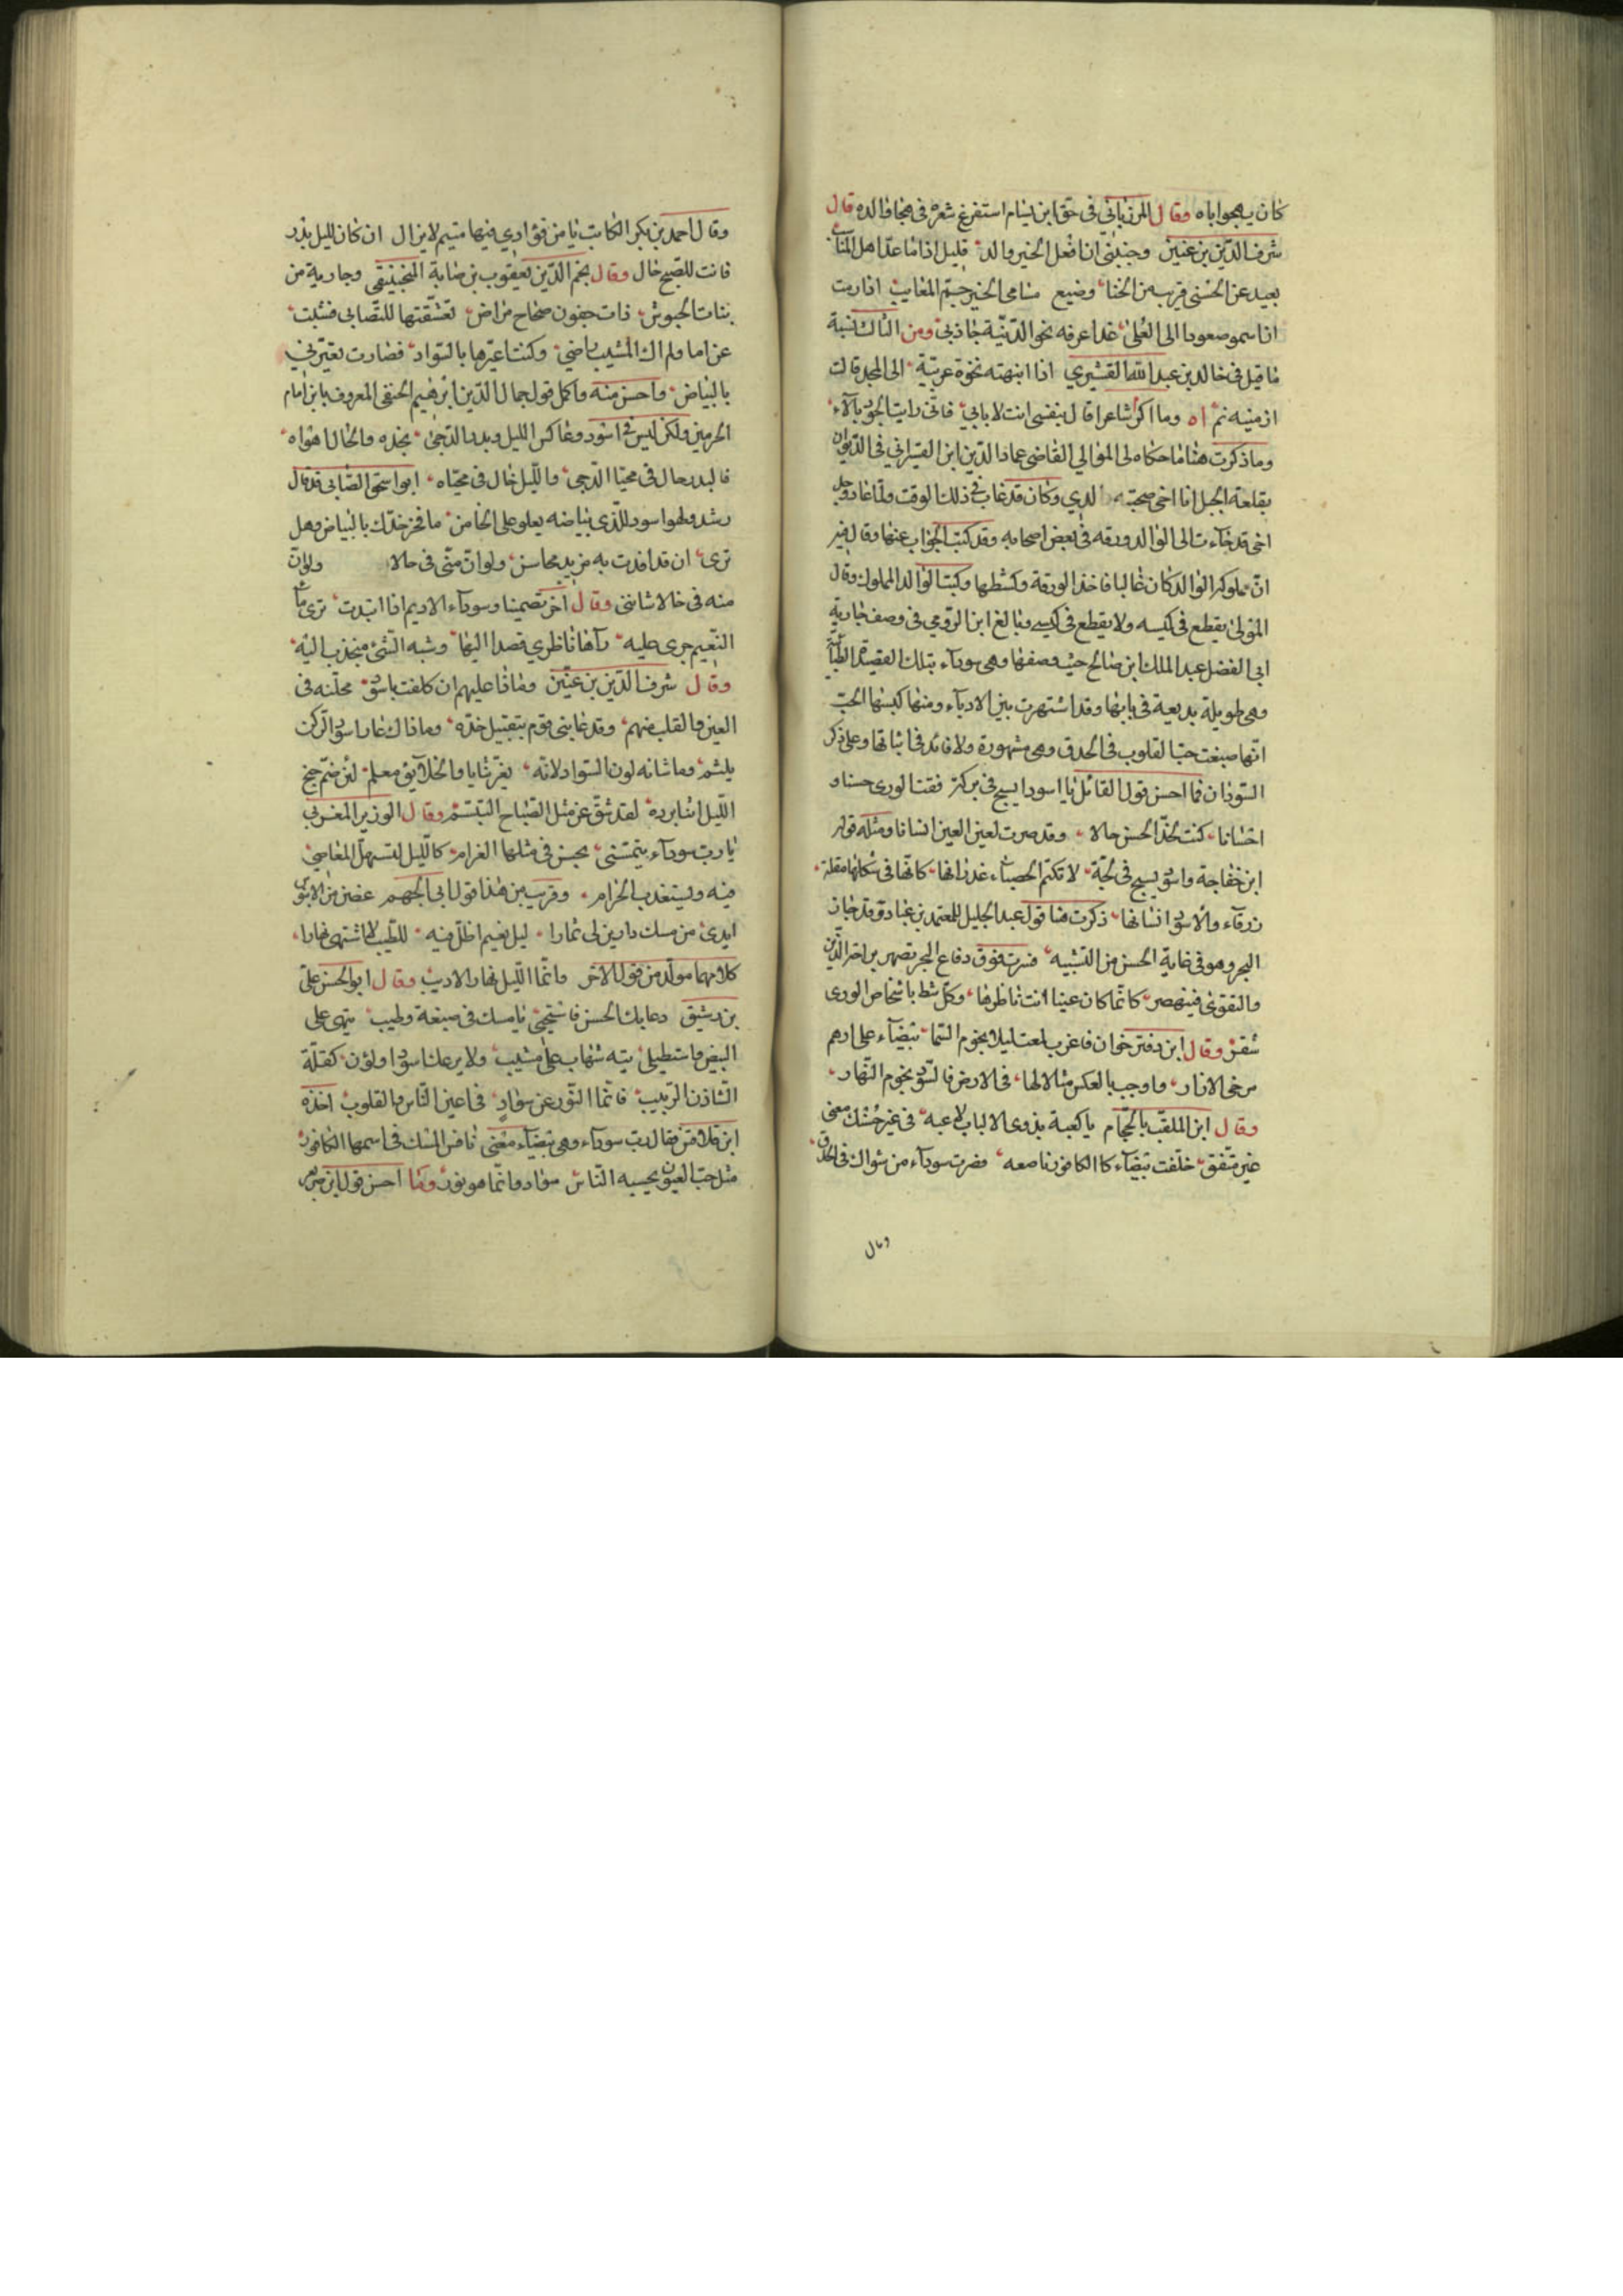 كان يهجو اباه وقال المرزباني في حق ابن بسام استفرغ شعره في هجا والده قال
شرف الدين بن عنين وجنبني ان افعل الخير والد قليل اذا ما عد اهل المناسب
بعيد عن الحسنى قريب من الخنا وضيع مساعي الخير جم المعايب اذا رمت
ان اسمو صعودا الى العلى غدا عرقه نحو الدنية جاذبي ومن
ما قيل في خالد بن عبد الله القشيري اذا انبهته نخوة عربية الى المجد قالت
ارمنيته نم اه وما اكر شاعرا قال بنفسي انت لا بابي فاني رايت الجود بالاء
وما ذكرت هنا ما حكاه لي المولى القاضي عماد الدين ابن القيسراني في الديوان
بقلعة الجبل انا اخي صحبته لدي وكان قد غاب في ذلك الوقت ولما عاد وجد
اخي قد جاءت الى الوالد ورقه في بعض اصحابه وقد كتب الجواب عنها وقال فيه
ان مملوكه الوالد كان غائبا فاخذ الورقة وكشطها وكتب الوالد المملوك وقال
المولى يقطع في كيسه ولا يقطع في كيسي وبالغ ابن الرومي في وصف جارية
ابي الفضل عبد الملك ابن صالح حيث وصفها وهي سودآء بتلك القصيدة
وهي طويلة بديعة في بابها وقد اشتهرت بين الادباء ومنها اكسبها الحب
انها صبغت حب القلوب في الحدق وهي مشهورة ولا فائدة في اثباتها وعلى ذكر
السودان فما احسن قول القائل يا اسودا يسبح في بركة فقت الورى حسنا و
احسانا كنت لخد الحسن خالا وقد صرت لعين العين انسانا ومثله قول
ابن خفاجة واسود يسبح في لجة لا تكتم الحصباء غدرانها كانها في شكلها مقلة
زرقاء والاسود انسانها ذكرت هنا قول عبد الجليل للمعتمد بن عباد وقد جاز
البحر وهو في غاية الحسن من التشبيه فسرت فوق دفاع البحر
كانما كان عينا انت ناظرها وكل شط باشخاص الورى
شفر وقال ابن دفترخوان فاغرب لمعت ليلا نجوم السما بيضاء على ادهم
مرخى الازار واوجب بالعكس مثالا لها في الارض فالسود نجوم النهار
وقال ابن الملقب بالحجام يا كعبة بذوي الالباب لاعبه في غير حسنك معنى
غير متفق خلقت بيضاء كالكافور ناصعه فصرت سوداء من مثواك في الحدق
وقال
وقال احمد بن بكر الكاتب يا من فؤادي فيها متيم لا يزال ان كان لليل بدر
فانت للصبح خال وقال نجم الدين يعقوب بن صابر المنجنيقي وجارية من
بنات الحبوش ذات جفون صحاح مراض تعشقتها للتصابي فشبت
غراما ولم اك بالشيب راضي وكنت اعيرها بالسواد فصارت تعيرني
بالبياض واحسن منه واكمل قول جمال الدين ابرهيم الحنفي المعروف بابن امام
الحرمين ولكن ليس في اسود وعاكس الليل وبدر الدجى بخده والخال اهواه
فالبدر خال في محيا الدجى والليل خال في محياه ابو اسحق الصابي قد قال
رشد ولهو اسود للذي بياضه يعلو على الخا من ما فخر خدك بالبياض وهل
ترى ان قد افدت به مزيد محاسن ولو ان مني فيه خالا ولو ان
منه في خالا شانني وقال اخر تضمينا وسودآء الاديم اذا تبدت ترى ماء
النعيم جرى عليه رآها ناظري فصبا اليها وشبه الشئ منجذب اليه
وقال شرف الدين بن عنين وماذا عليهم ان كلفت باسود محلته في
العين والقلب منهم وقد عابني قوم بتقبيل خده وما ذاك عار اسود الركن
يلثم وما شانه لون السواد لانه بغر ثنايا والخلائق معلم لئن ضم جنح
الليل اثنا برده لقد شق عن مثل الصباح التبسم وقال الوزير المغربي
يا رب سودآء يتمتني يحسن في مثلها الغرام كالليل تستسهل المعاصي
فيه ويستعذب الحرام وقريب من هذا قول ابي الجهم غصن من الابنوس
ابدى من مسك دارين لي ثمارا ليل نعيم اظل فيه للطيب لا اشتهي نهارا
كلاهما مولد من قول الاخر وانما الليل نهار الاديب وقال ابو الحسن علي
بن رشيق دعا بك الحسن فاستجيبي يا مسك في صبغة وطيب تيهي على
البيض واستطيلي تيه شباب على مشيب ولا يرعك اسوداد لون كمقلة
الشادن الربيب فانما النور عن سواد في اعين الناس والقلوب اخذه
ابن قلاقس فقال رب سودآء وهي بيضآء معنى نافس المسك في اسمها الكافور
مثل حب العيون يحسبه الناس سوادا وانما هو نور وما احسن قول ابن